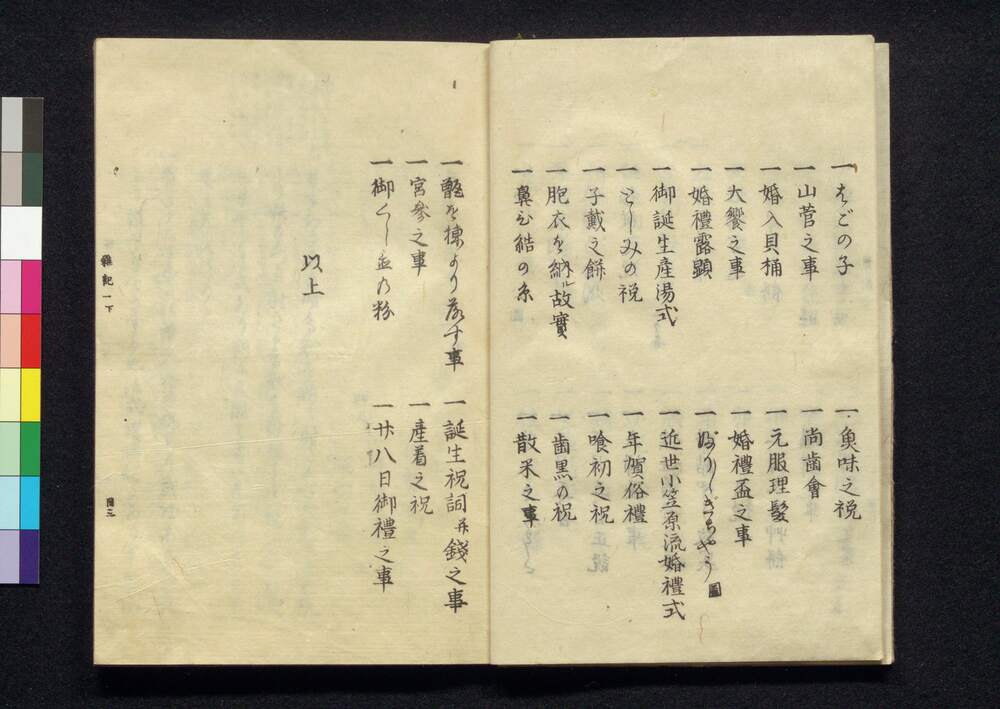 一 はごの子 一 魚味之祝
一 山菅之事 一 尚齒會
一 婚入貝桶 一 元服理髪
一 大饗之事 一 婚禮盃之事
一 婚禮露顕 一 ぶり〳〵ぎつちやう 圖
一 御誕生産湯式 一 近世小笠原流婚禮式
一 としみの祝 一 年賀俗禮
一 子戴之餅 一 喰初之祝
一 胞衣を納ル故實 一 歯黒の祝
一 鼻ひ結の糸 一 散米之事
一 甑を棟より落す事 一 誕生祝詞并錢之事
一 宮參之事 一 産着之祝
一 御くし 乃粉 一 廿八日御禮之事
以上
雜記 一下
目三